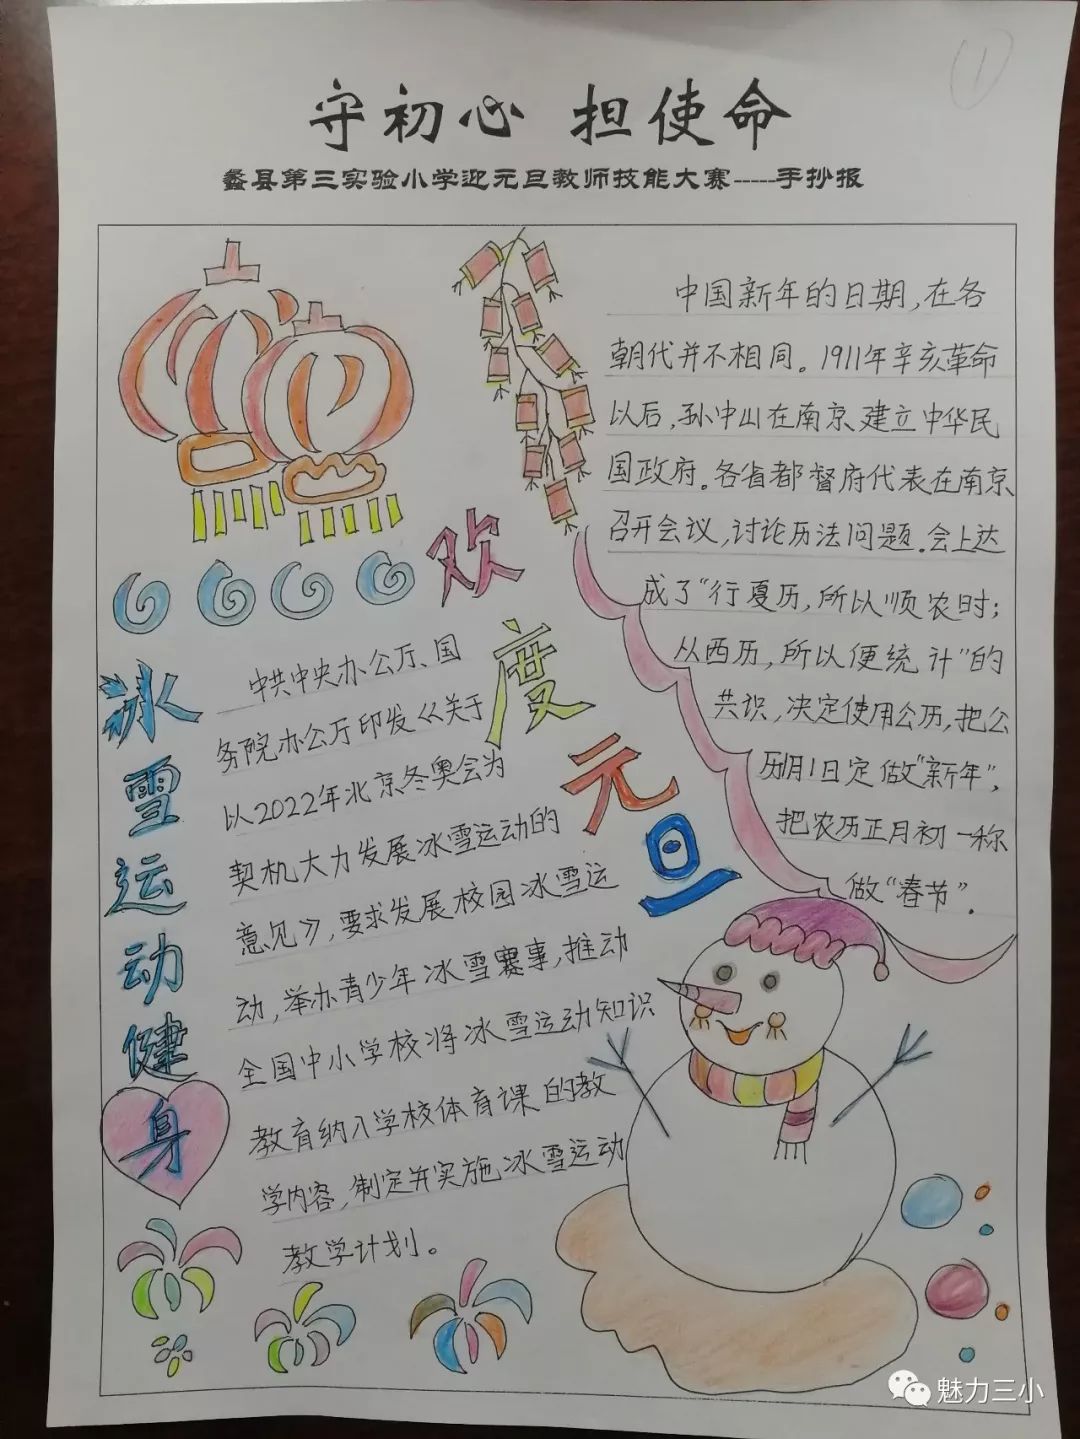 ①
守初心 担使命
蠡县第三实验小学迎元旦教师技能大赛-----手抄报
中国新年的日期,在各
朝代并不相同。1911年辛亥革命
以后,孙中山在南京建立中华民
国政府。各省都督府代表在南京
召开会议,讨论历法问题.会上达
成了“行夏历,所以顺农时;
从西历,所以便统计”的
共识,决定使用公历,把公
历1月1日定做“新年”,
把农历正月初一称
做“春节”.
欢度元旦
冰雪运动健身
中共中央办公厅、国
务院办公厅印发《关于
以2022年北京冬奥会为
契机大力发展冰雪运动的
意见》,要求发展校园冰雪运
动,举办青少年冰雪赛事,推动
全国中小学校将冰雪运动知识
教育纳入学校体育课的教
学内容,制定并实施冰雪运动
教学计划。
魅力三小